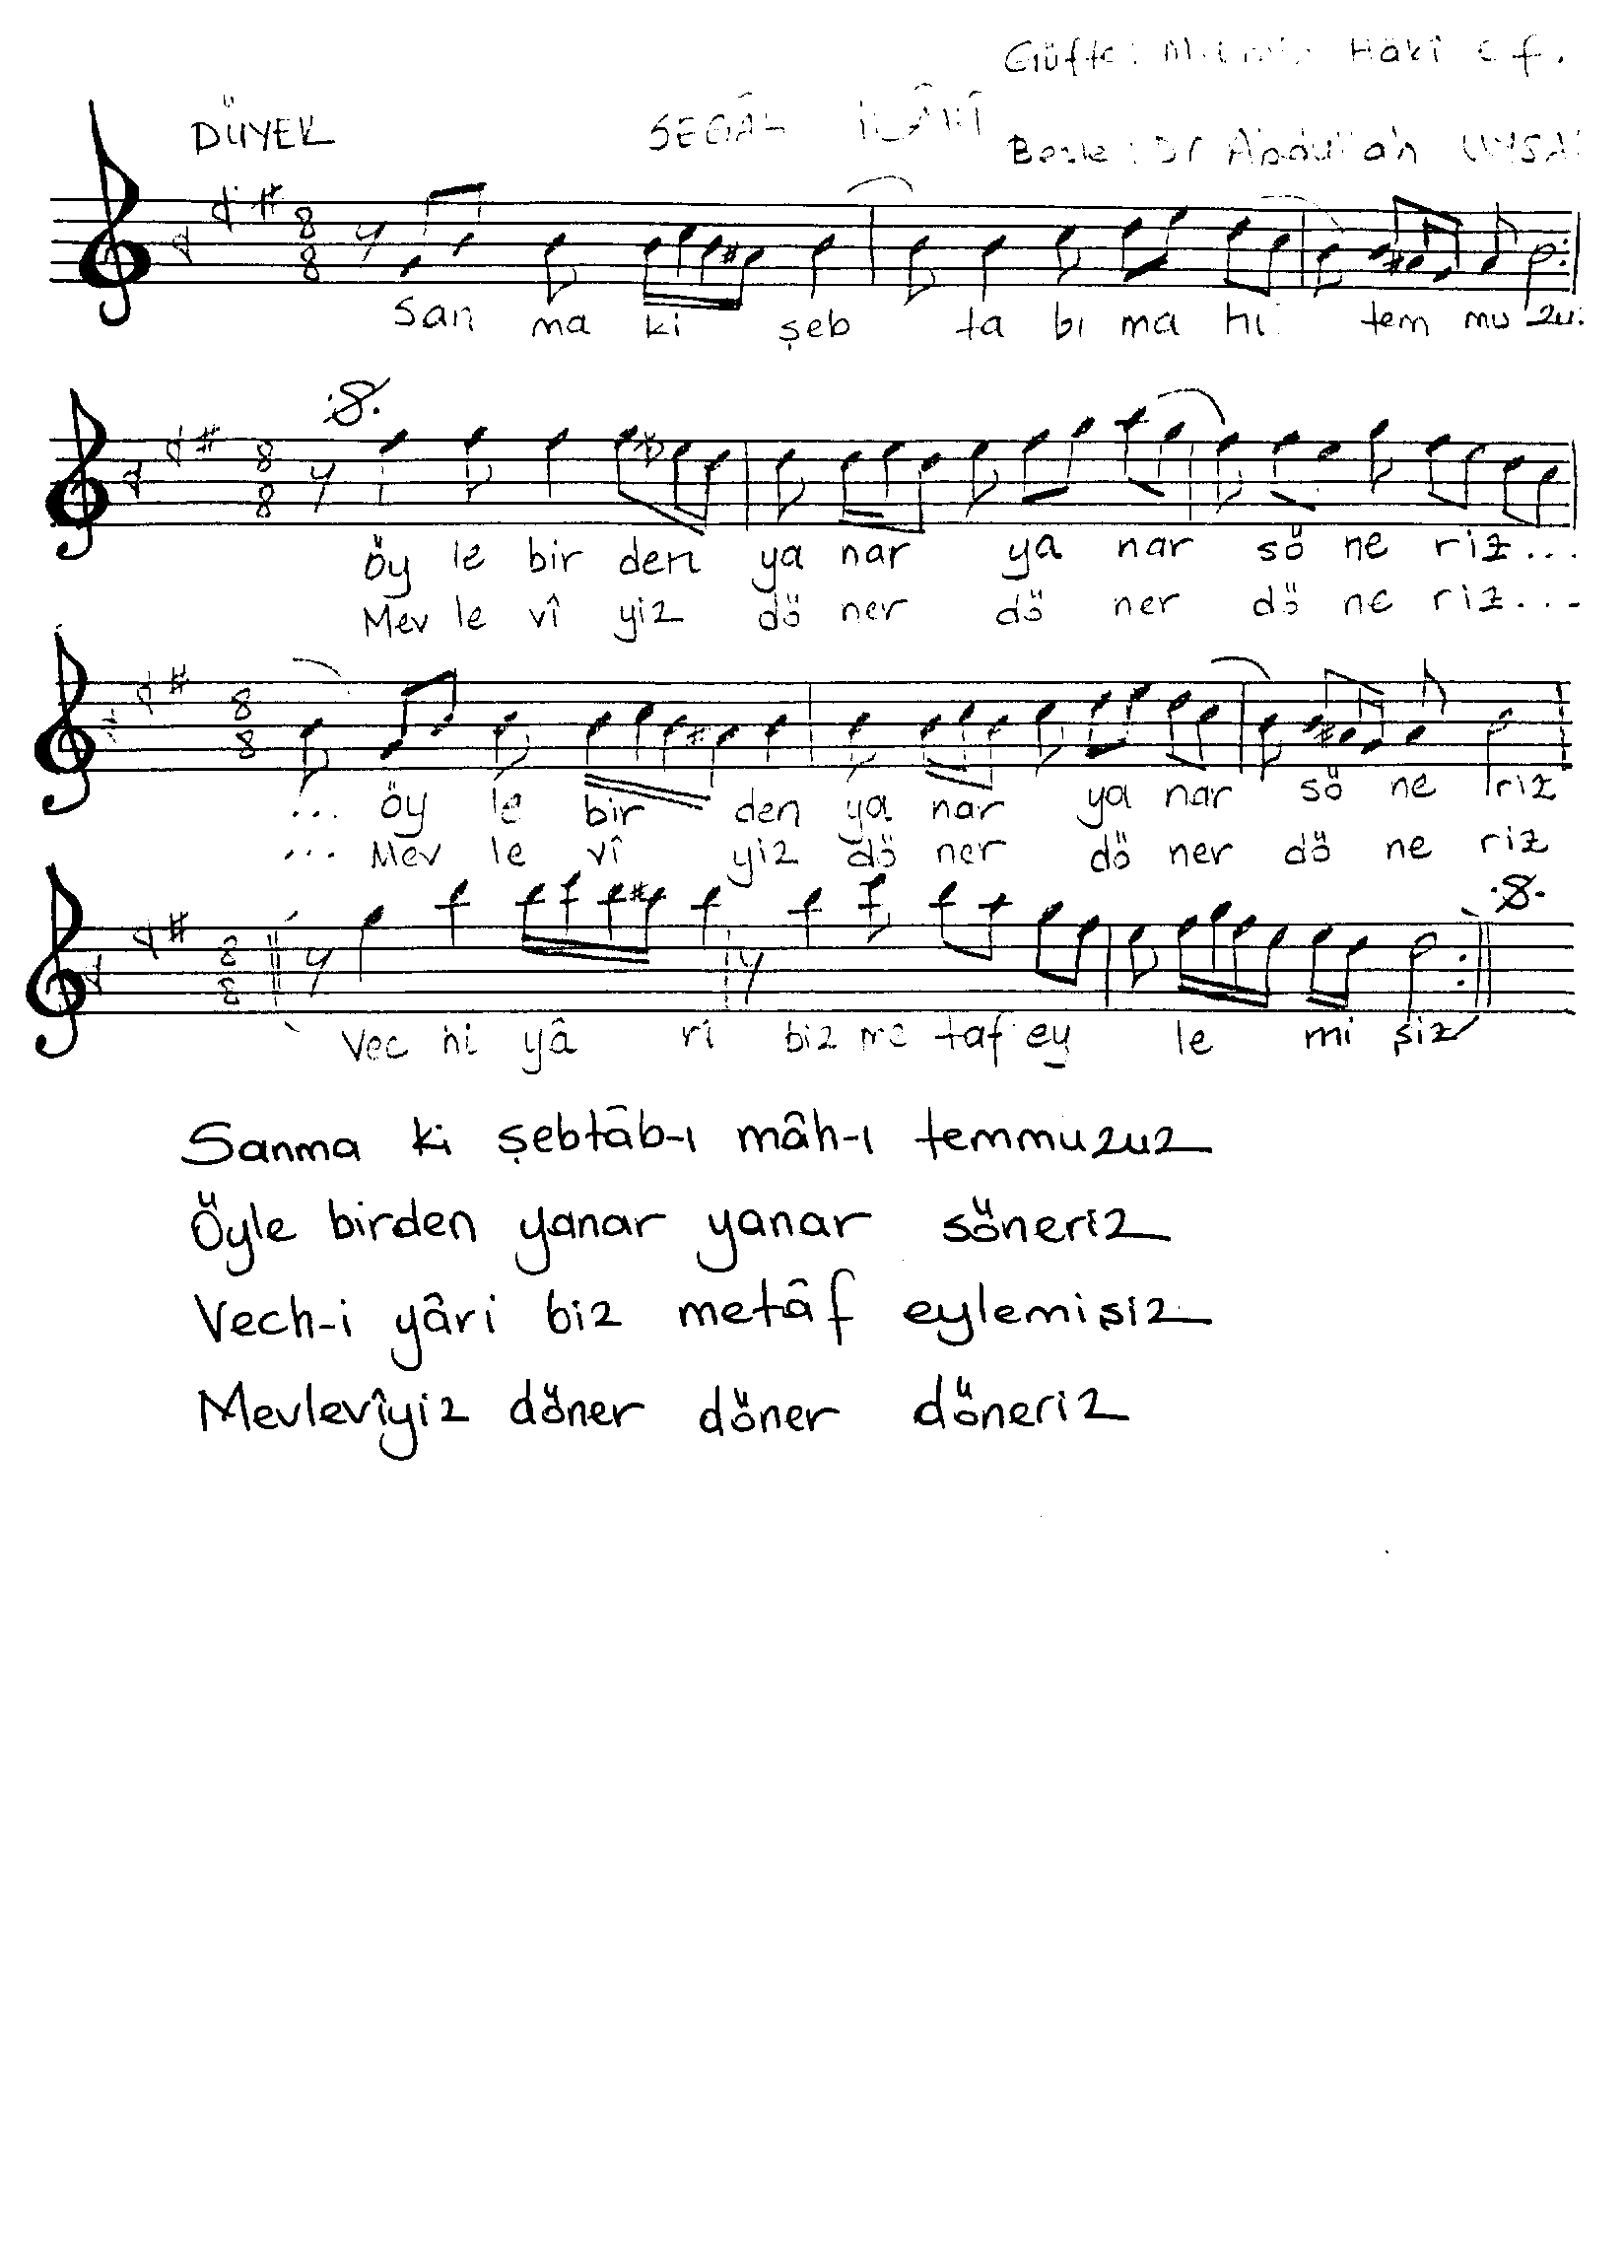 Güfte: Hâkî Ef.
DÜYEK SEGÂH İLÂHÎ
Beste: Dr Abdullah UYSAL
8 8
San ma ki şeb ta bı ma hı tem mu zuz
8 8
öy le bir den ya nar ya nar sö ne riz...
Mev le vî yiz dö ner dö ner dö ne riz...
8 8
... öy le bir den ya nar ya nar sö ne riz
... Mev le vî yiz dö ner dö ner dö ne riz
8 8
Vec hi yâ ri biz me taf ey le mi şiz
Sanma ki şebtâb-ı mâh-ı temmuzuz
Öyle birden yanar yanar söneriz
Vech-i yâri biz metâf eylemişiz
Mevlevîyiz döner döner döneriz